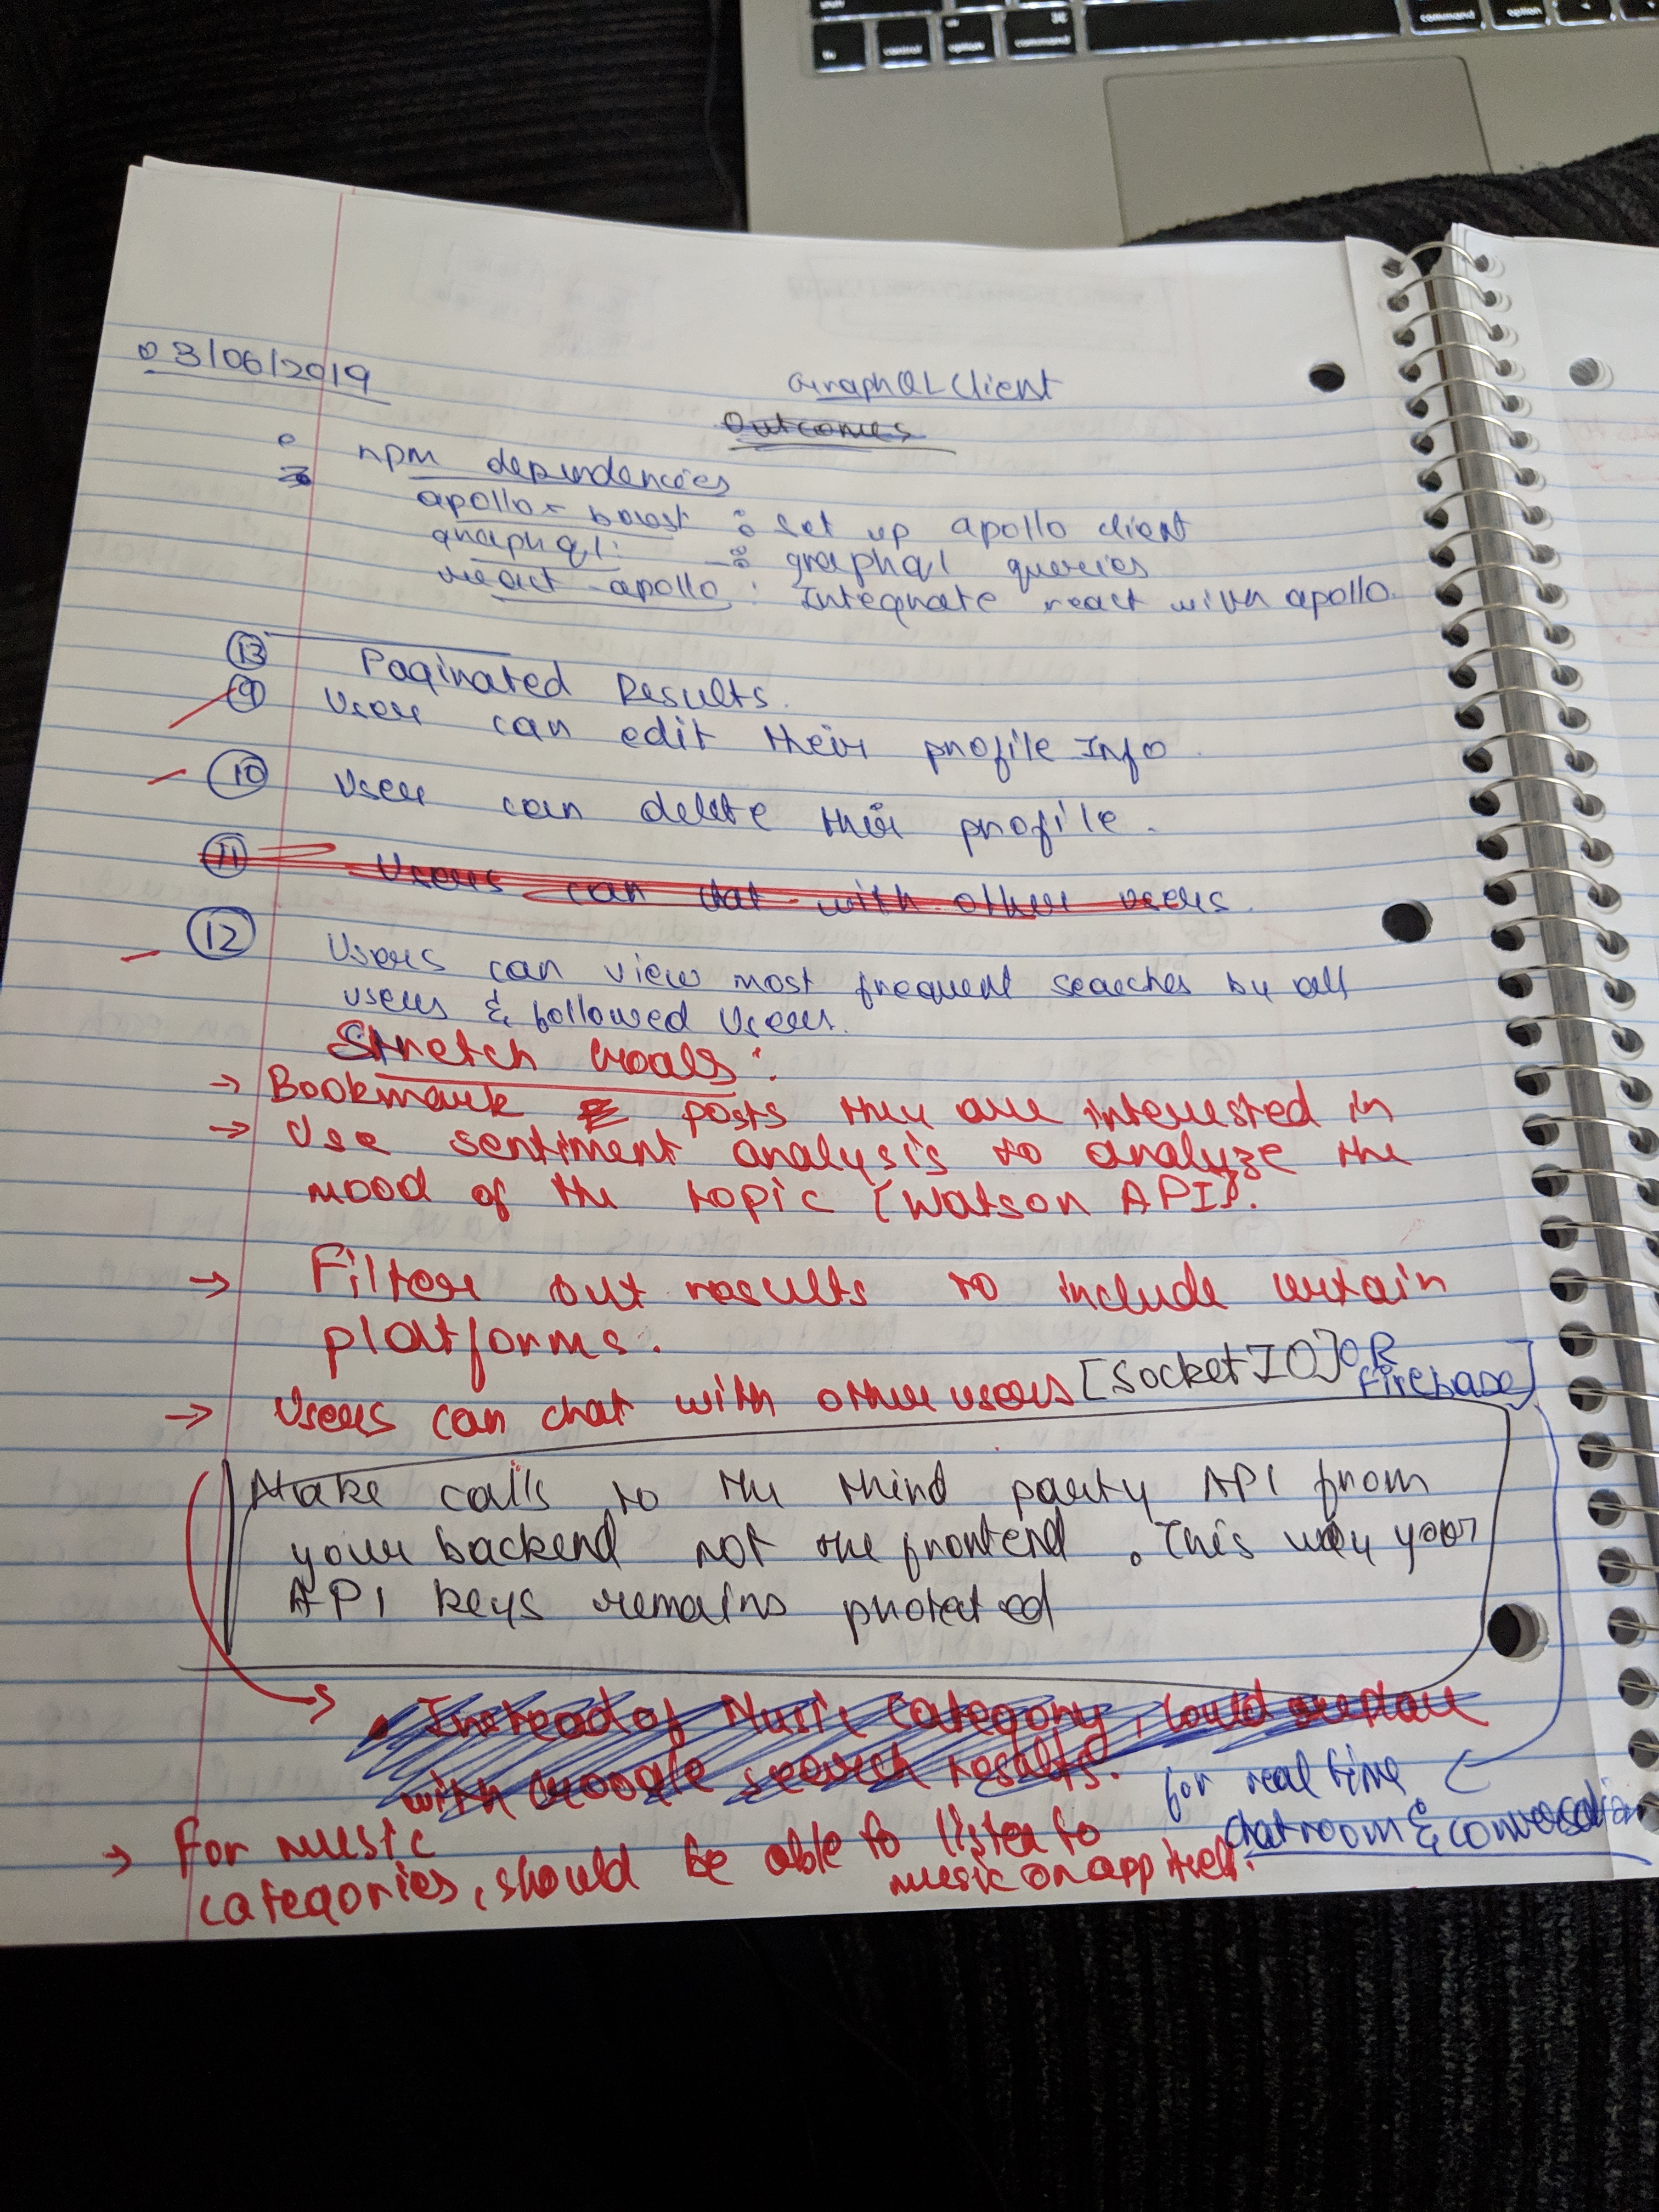 03/06/2019
GraphQL Client
Outcomes
npm dependencies
apollo-boost : set up apollo client
graphql: : graphql queries
react-apollo : Integrate react with apollo.
13 Paginated Results.
9 User can edit their profile Info.
10 User can delete their profile.
11 Users can chat with other users.
12 Users can view most frequent searches by all
users & followed users.
Stretch Goals:
→ Bookmark posts they are interested in
→ Use sentiment analysis to analyze the
mood of the topic (Watson API).
→ Filter out results to include certain
platforms.
→ Users can chat with other users [Socket IO] OR
Firebase]
Make calls to the third party API from
your backend not the frontend. This way your
API keys remains protected
→ • Instead of Music Category, could replace
with Google search results.
for real time
chatroom & conversation
→ For music
categories, should be able to listen to
music on app itself.
command option
fn control option command